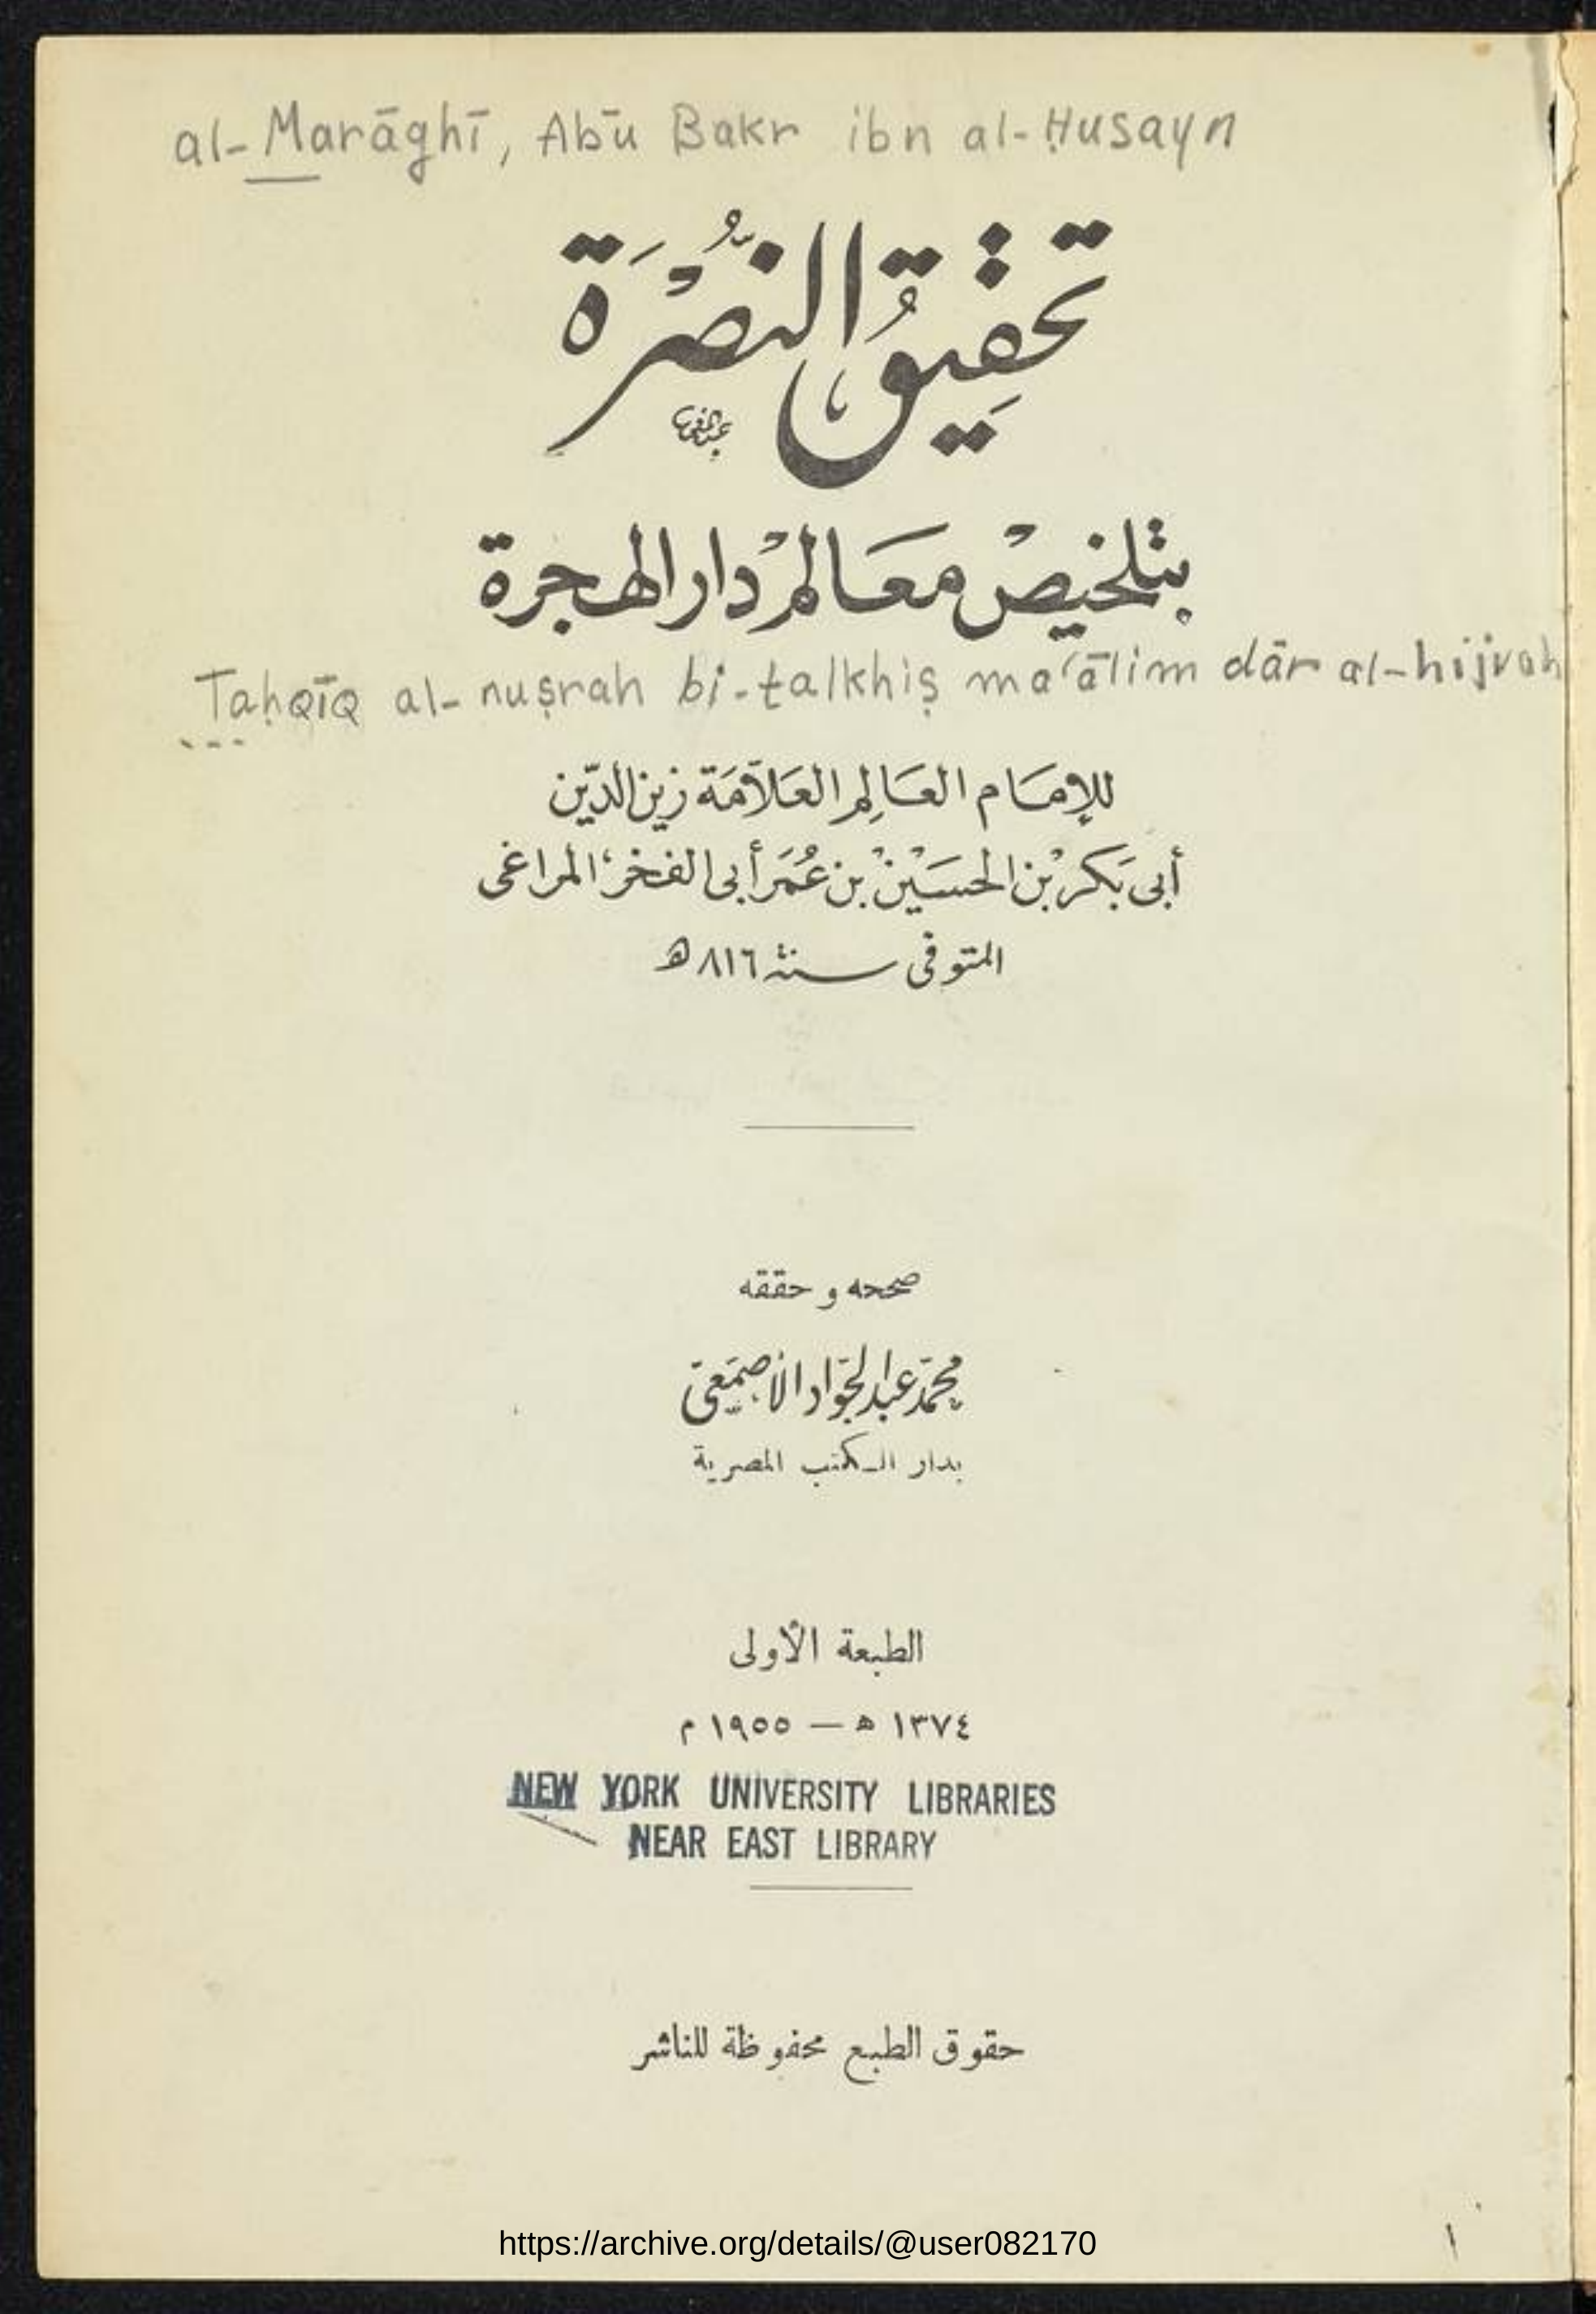 al-Marāghī, Abū Bakr ibn al-Ḥusayn
تحقِيقُ النُّصْرَة
بتلخيصْ معَالمْ دار الهجرة
Taḥqīq al-nuṣrah bi-talkhiṣ ma'ālim dār al-hijrah
للإمَام العَالِم العَلاّمَة زين الدّين
أبى بَكر بْن الحسَيْنْ بن عُمَر أبى الفخر المراغى
المتوفى سنة ٨١٦ ھ
صححه و حققه
محمّد عبد الجوّاد الأصمَعىّ
بدار الكتب المصرية
الطبعة الأولى
١٣٧٤ ه — ١٩٥٥ م
NEW YORK UNIVERSITY LIBRARIES
NEAR EAST LIBRARY
حقوق الطبع محفوظة للناشر
https://archive.org/details/@user082170